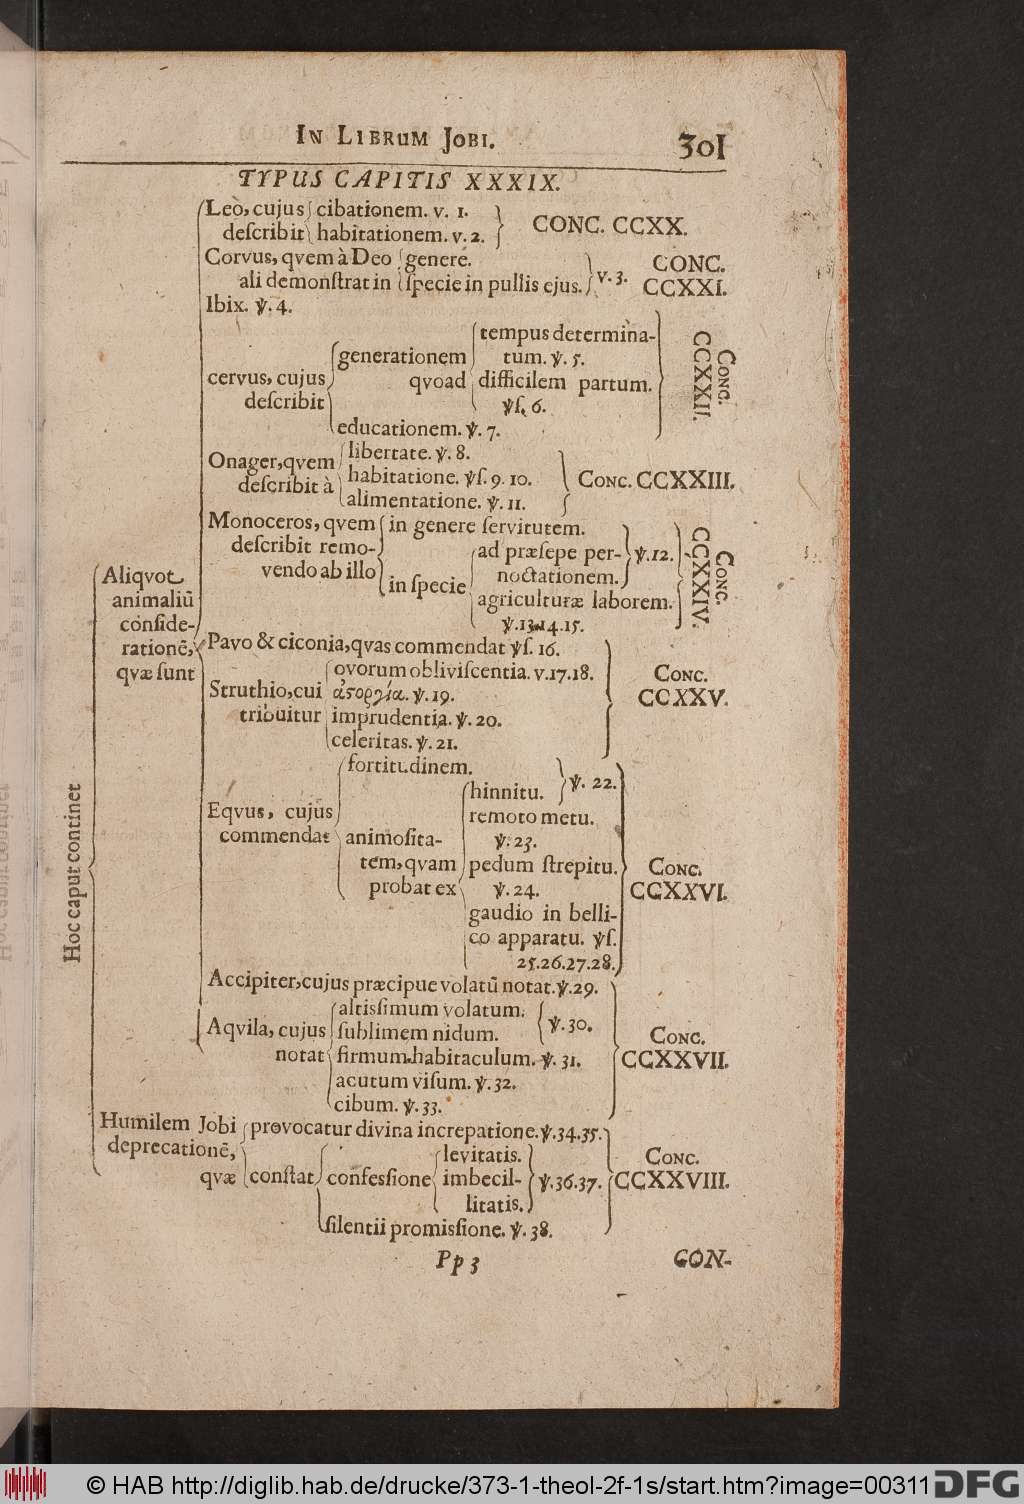 IN LIBRUM JOBI. 301
TYPUS CAPITIS XXXIX.
Leo, cujus cibationem. v. 1.
deſcribit habitationem. v. 2. CONC. CCXX.
Corvus, qvem à Deo genere. CONC.
ali demonſtrat in ſpecie in pullis ejus. v. 3. CCXXI.
Ibix. ℣. 4.
tempus determina-
generationem tum. ℣. 5.
cervus, cujus qvoad difficilem partum.
deſcribit ℣ſ. 6.
educationem. ℣. 7.
CONC.
CCXXII.
libertate. ℣. 8.
Onager, qvem habitatione. ℣ſ. 9. 10. CONC. CCXXIII.
deſcribit à alimentatione. ℣. 11.
Monoceros, qvem in genere ſervitutem.
deſcribit remo- ad præſepe per- ℣. 12.
vendo ab illo in ſpecie noctationem.
agriculturæ laborem.
℣. 13. 14. 15.
CONC.
CCXXIV.
Aliqvot
animaliũ
conſide-
rationẽ,
qvæ ſunt
Pavo & ciconia, qvas commendat ℣ſ. 16.
ovorum obliviſcentia. v. 17. 18. CONC.
Struthio, cui ἀστοργία. ℣. 19. CCXXV.
tribuitur imprudentia. ℣. 20.
celeritas. ℣. 21.
fortitudinem.
hinnitu. ℣. 22.
Eqvus, cujus remoto metu.
commendat animoſita- ℣. 23.
tem, qvam pedum ſtrepitu. CONC.
probat ex ℣. 24. CCXXVI.
gaudio in belli-
co apparatu. ℣ſ.
25. 26. 27. 28.
Hoc caput continet
Accipiter, cujus præcipue volatũ notat. ℣. 29.
altiſſimum volatum.
Aqvila, cujus ſublimem nidum. ℣. 30. CONC.
notat firmum habitaculum. ℣. 31. CCXXVII.
acutum viſum. ℣. 32.
cibum. ℣. 33.
Humilem Jobi provocatur divina increpatione. ℣. 34. 35.
deprecationẽ, levitatis. CONC.
qvæ conſtat confeſſione imbecil- ℣. 36. 37. CCXXVIII.
litatis.
ſilentii promiſſione. ℣. 38.
Pp 3 CON-
© HAB http://diglib.hab.de/drucke/373-1-theol-2f-1s/start.htm?image=00311 DFG